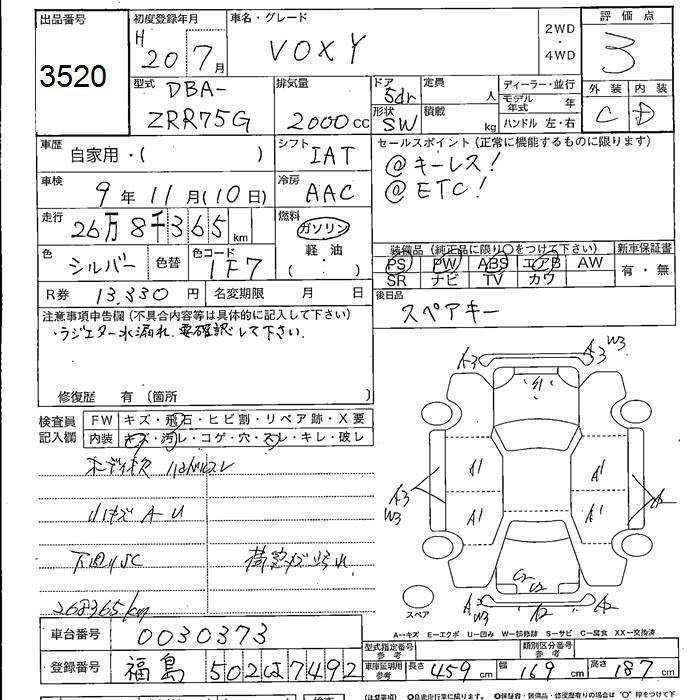 出品番号
3520
初度登録年月
H 20 7月
車名・グレード
VOXY
2WD
・
4WD
評価点
3
外装 内装
C D
型式
DBA-
ZRR75G
排気量
2000cc
ドア
5dr
形状
SW
定員
人
積載
kg
ディーラー・並行
モデル年式 年
ハンドル 左・右
車歴
自家用・( )
シフト
IAT
セールスポイント (正常に機能するものに限ります)
@キーレス!
@ETC!
車検
9年11月(10日)
冷房
AAC
走行
26万8千365km
燃料
ガソリン
軽油
( ・ )
色
シルバー
色替
色コード
1F7
装備品 (純正品に限り○をつけて下さい)
PS PW ABS エアB AW
SR ナビ TV カワ
新車保証書
有・無
R券 13,330円
名変期限 月 日
後日品
スペアキー
注意事項申告欄 (不具合内容等は具体的に記入して下さい)
・ラジエター水漏れ 要確認して下さい.
修復歴 有 〔箇所 〕
検査員
記入欄
FW キズ・飛石・ヒビ割・リペア跡・X要
内装 キズ・汚レ・コゲ・穴・スレ・キレ・破レ
小キズ A U
下廻りSC
268365km
A3
A3 W3
A1 A1
A1 A1
A3
W3
A2
スペア
W3
A2
A2
A—キズ E—エクボ U—凹み W—補修跡 S—サビ C—腐食 XX—交換済
車台番号
0030373
登録番号
福島 502は7492
型式指定番号
参考
類別区分番号
参考
車庫証明用
参考
長さ 459cm 幅 169cm 高さ 187cm